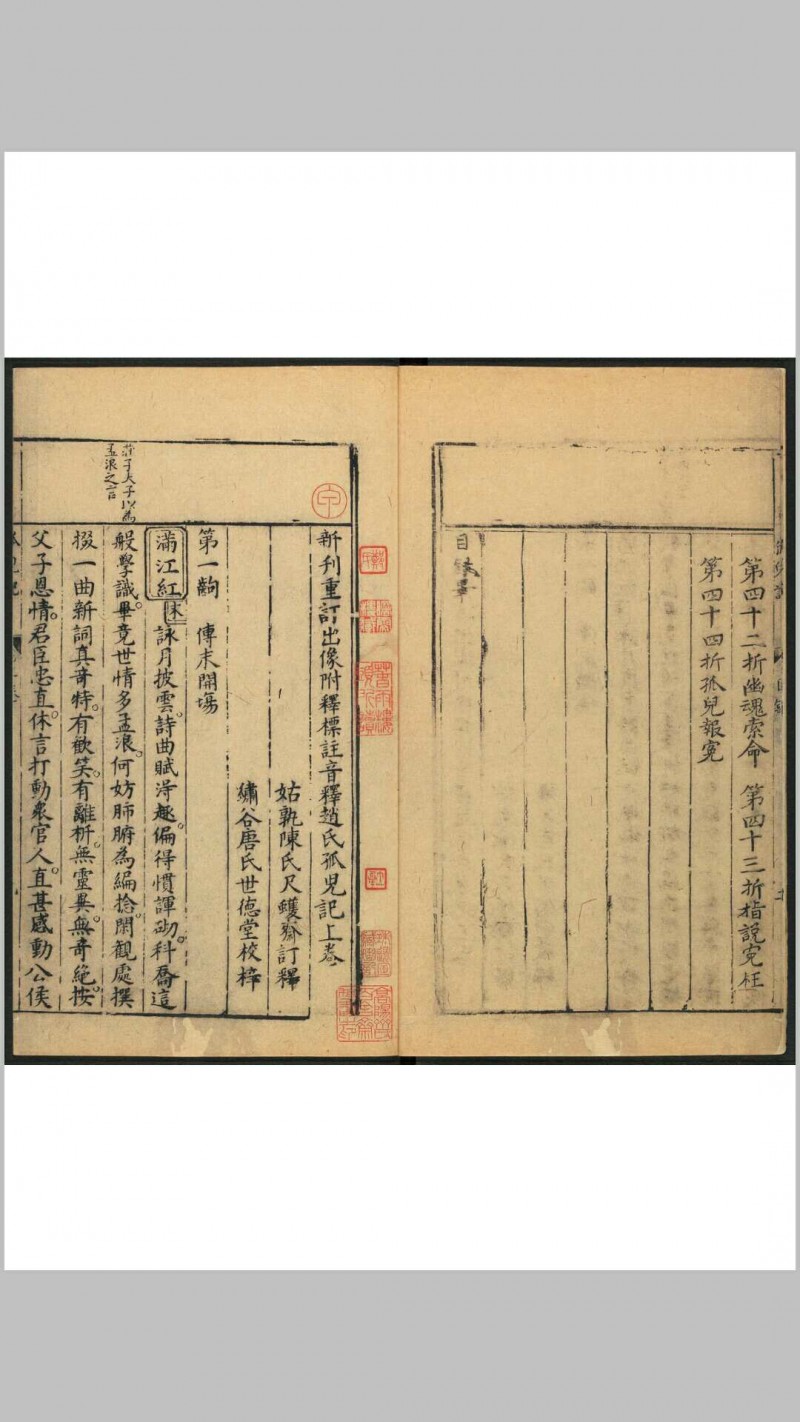 第四十二折幽魂索命　第四十三折指說寃枉
第四十四折孤兒報寃
目錄畢
新刊重訂出像附釋標註音釋趙氏孤兒記上卷
姑孰陳氏尺蠖齋訂釋
繡谷唐氏世德堂校梓
第一齣　傳末開場
滿江紅 末 詠月披雲。詩曲賦淂趣。偏得慣諢砌。科喬這
般學識。畢竟世情多孟浪。何妨肺腑為編捨。閑觀處撰
掇一曲新詞真奇特。有歡笑。有離析。無靈異。無奇絶。按
父子恩情。君臣忠直。休言打動衆官人。直甚感動公侯
莊子夫子以為
孟浪之言